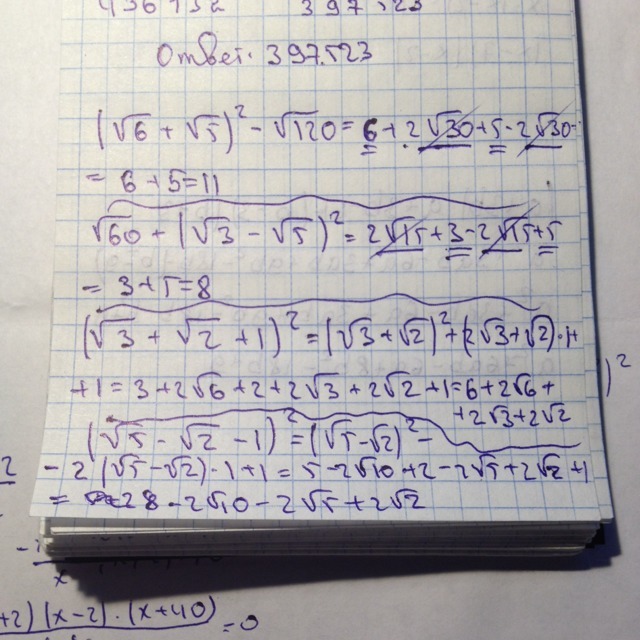 436732 397523
Ответ: 397523
(√6 + √5)² - √120 = 6 + 2√30 + 5 - 2√30 =
= 6 + 5 = 11
√60 + (√3 - √5)² = 2√15 + 3 - 2√15 + 5
= 3 + 5 = 8
(√3 + √2 + 1)² = (√3 + √2)² + (2√3 + √2)·1+
+1 = 3 + 2√6 + 2 + 2√3 + 2√2 + 1 = 6 + 2√6 +
+ 2√3 + 2√2
)²
(√5 - √2 - 1)² = (√5 - √2)² -
- 2(√5 - √2)·1 + 1 = 5 - 2√10 + 2 - 2√5 + 2√2 + 1
= 8 - 2√10 - 2√5 + 2√2
2
x
+2)(x-2)·(x+40) = 0